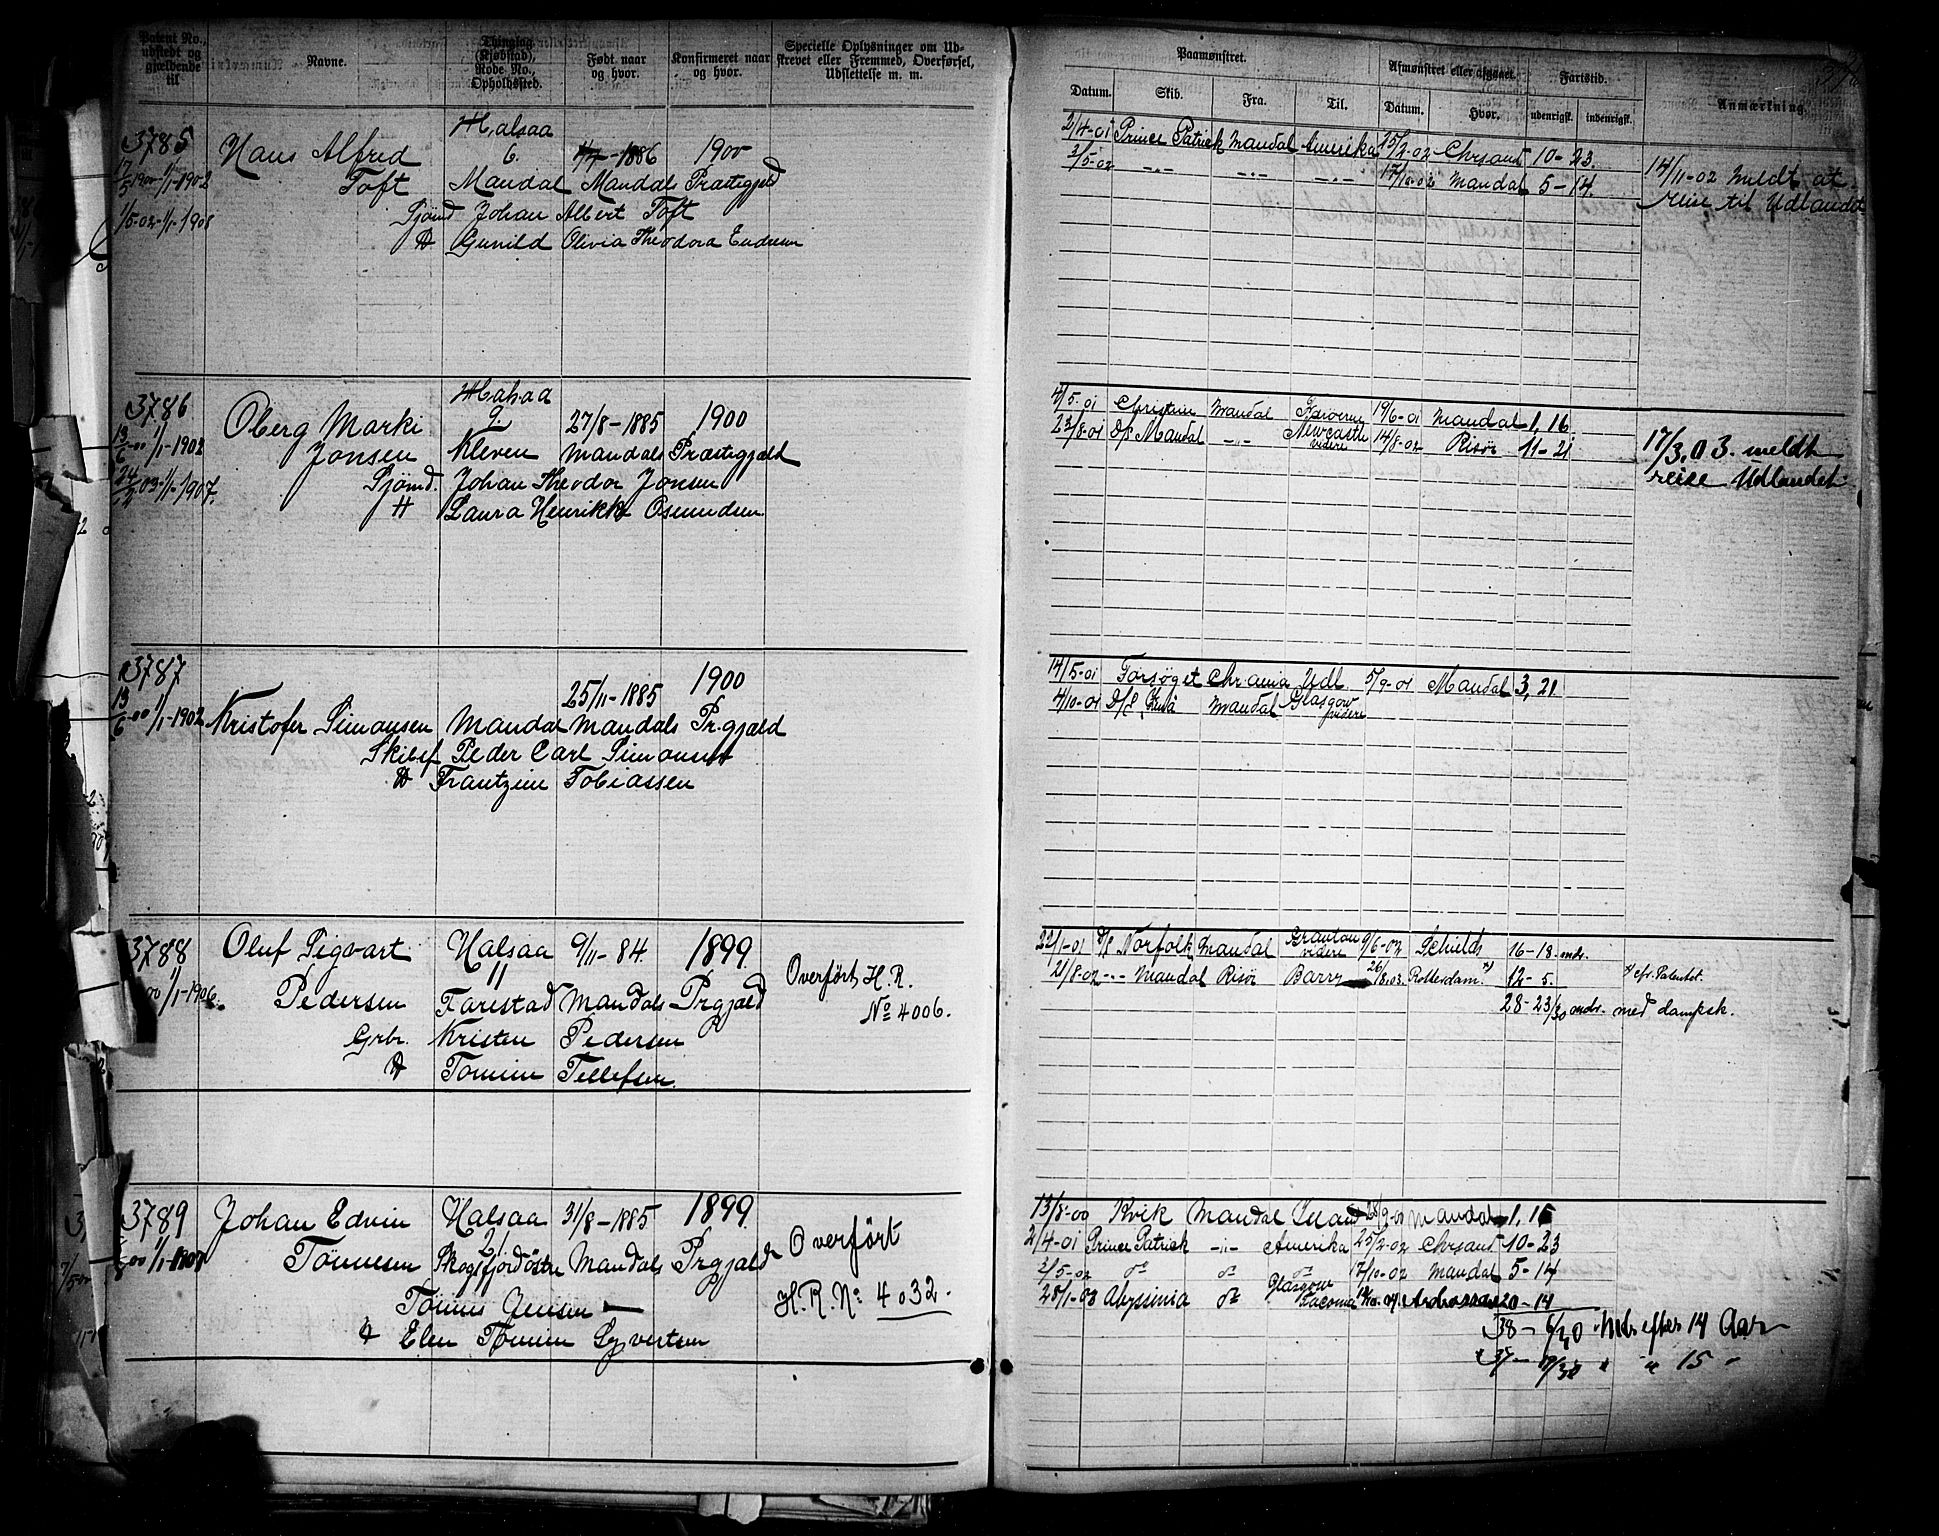 Patent No., udstedt og gjældende til
Navne.
Thinglag (Kjøbstad), Rode No., Opholdssted.
Født naar og hvor.
Konfirmeret naar og hvor.
Specielle Oplysninger om Udskrevet eller Fremmed, Overførsel, Udslettelse m. m.
3785
Halsaa
Hans Alfred 6. 1886 1900
17/5 1900 1/1-1902 Toft Mandal Mandals Præstegjeld
1/5-02-1/1-1908 Sjømd Johan Albert Toft
& Gunild Olivia Theodora
3786 Halsaa
Oberg Marki 9. 27/8-1885 1900
13/6-00 1/1-1902 Jonsen Kleven Mandals Præstegjæld
24/2 03-1/1-1907. Sjømd. Johan Theodor Jonsen
Laura Osmundsen
3787 25/11-1885 1900
13/6-00 1/1-1902 Kristofer Simonsen Mandal Mandals Prgjæld
Skibsf Peder Carl Simonsen
& Frantzine Tobiassen
3788 Oluf Sigvart Halsaa 9/11-84 1899
11 Overført H. R.
1/1-1906 Pedersen Farestad Mandals Prgjæld No 4006.
Grbr. Kristen Pedersen
& Tomine Tellefsen
3789 Johan Edvin Halsaa 31/8-1885 1899
21 Overført
Tønnesen Skogsfjordøstre Mandals Prgjæld
Tønnes Jensen H. R. No: 4032.
& Elen Syvertsen
Paamønstret.
Afmønstret eller afgaaet.
Fartstid.
Anmærkning
Datum. Skib. Fra. Til. Datum. Hvor. udenrigsk. indenrigsk.
2/4-01 Prince Patrick Mandal Amerika 25/2-02 Chrsand 10-23.
2/5-02 -"- -"- -"- 17/10-02 Mandal 5-14.
14/11-02 meldt at
reise til Udlandet
4/5-01 Christine Mandal 19/6-01 Mandal 1, 16
23/8-01 D/S Mandal -"- Newcastle videre 14/8-02 Risør 11-21
17/3.03. meldt
reise Udlandet.
14/5-01 Forsøget Chrania Udl 5/9-01 Mandal 3, 21
4/10-01 D/S Mandal Glasgow videre
22/1-01 D/S Norfolk Mandal Granton videre 9/6-02 Schields 16-18. mdr.
21/8-02 -"- Mandal Risør Barry 26/8.03. Rotterdam. x) 12-5. x) cfr. Patentet.
28-23/30 mdr. med dampsk.
13/8-00 Kvik Mandal Mandal 1, 15
2/4-01 Prince Patrick -"- Amerika 25/2-02 Chrsand 10-23
2/5-02 do do do 17/10-02 Mandal 5-14
28/1-03 Abyssinia do Glasgow Tacoma 20-14
38-6/30 Mdr efter 14 Aar
37- " " 15 "